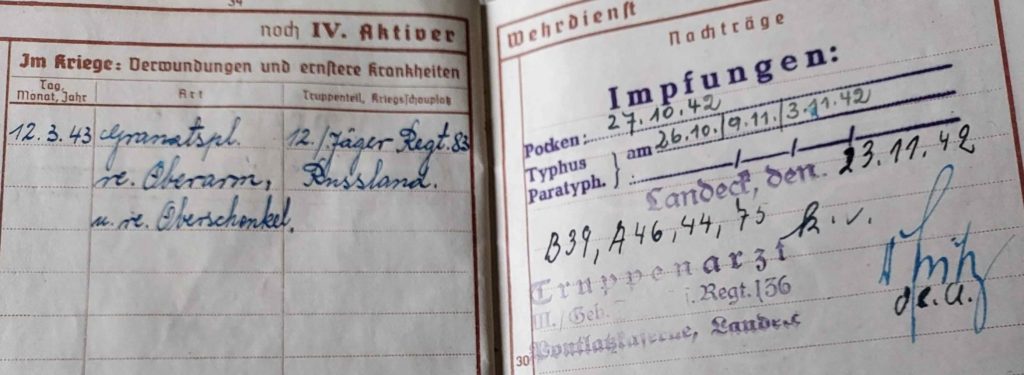 noch IV. Aktiver
Im Kriege: Verwundungen und ernstere Krankheiten
Tag, Monat, Jahr
Art
Truppenteil, Kriegsschauplatz
12.3.43 Granatspl. 12./Jäger Regt. 83
re. Oberarm, Russland.
u. re. Oberschenkel.
Wehrdienst
Nachträge
Impfungen:
Pocken: 27.10.42
Typhus
Paratyph. } am 26.10./9.11./3.11.42
Landeck, den 23.11.42
B39, A46, 44, 75 k.v.
Truppenarzt
III./Geb. Regt. 136
Pontlatzkaserne, Landeck
30